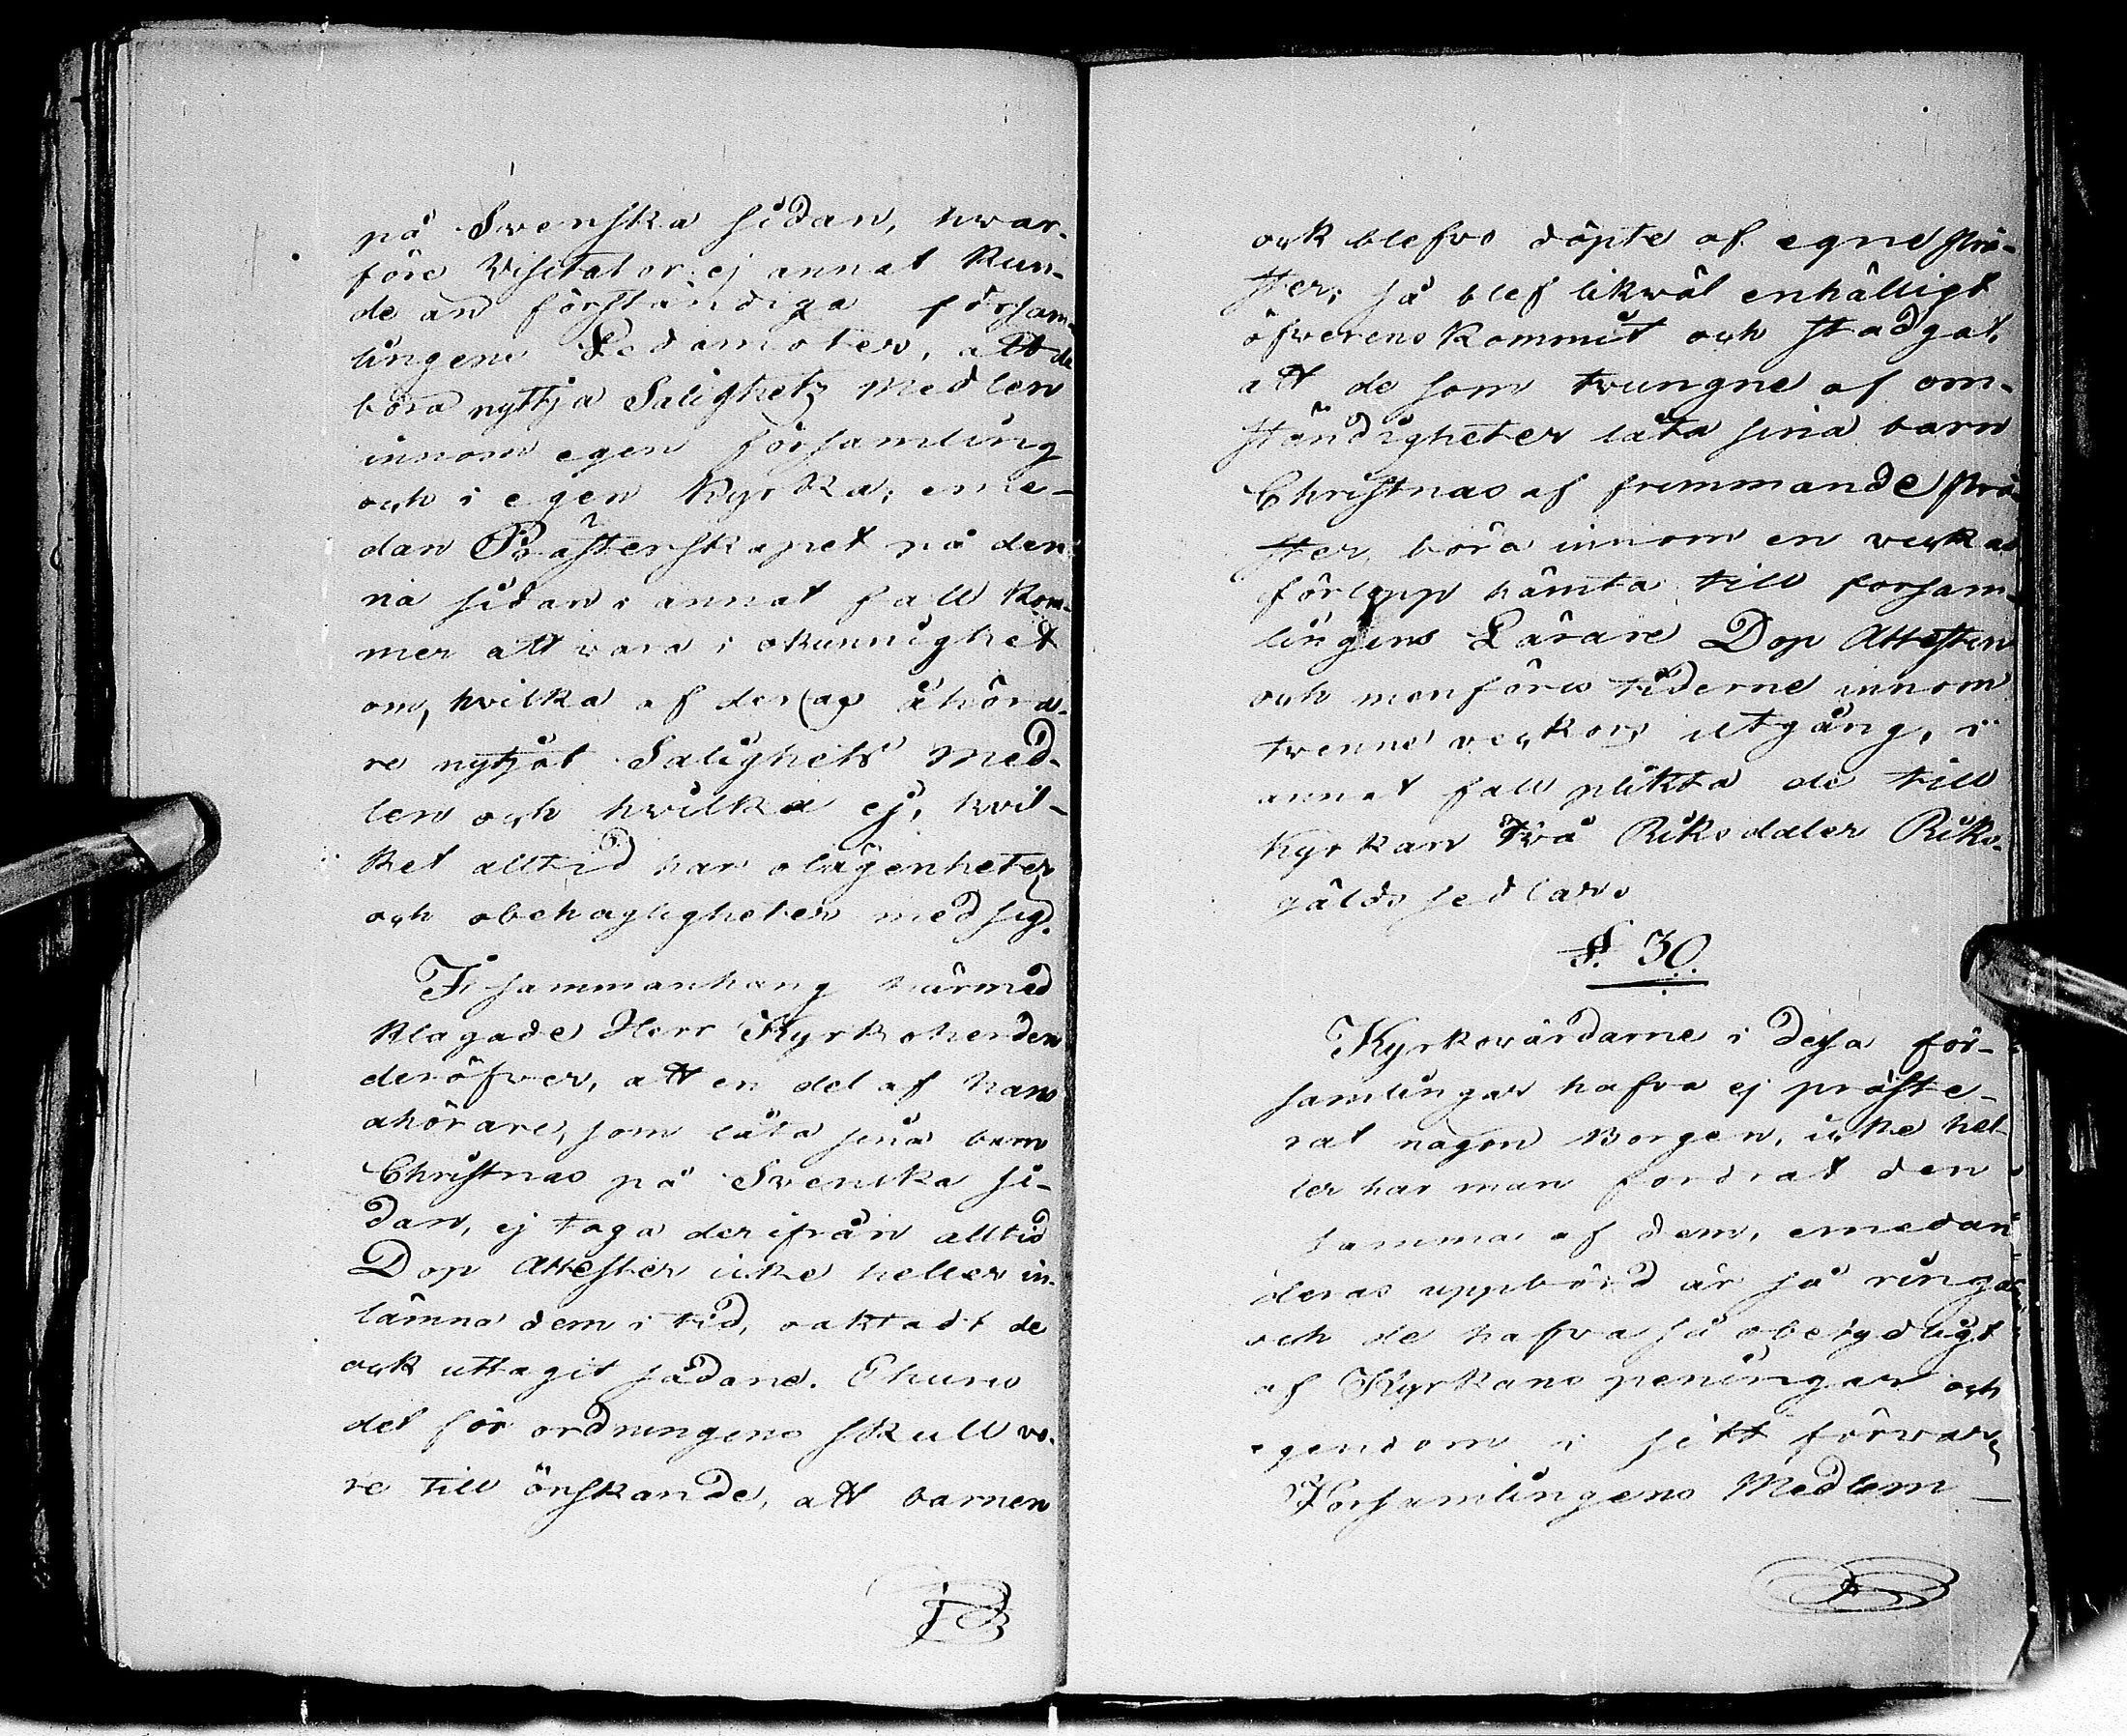 på Svenska sidan, hvar-
före Visitator ej annat kun-
de än förständiga försam-
lingens Ledamöter, att de
böra nyttja Salighetz Medlen
innom egen församling
och i egen Kyrka, eme-
dan Prästerskapet på den-
na sidan i annat fall kom-
mer att vara i okunnighet
om, hvilka af deras åhöra-
re nytjat Salighets Med-
len och hvilka ej, hvil-
ket alltid har olägenheter
och obehagligheter med sig.
I sammanhang härmed
klagade Herr Kyrkoherden
deröfver, att en del af hans
åhörare, som låta sina barn
Christnas på Svenska si-
dan, ej taga derifrån alltid
Dop Attester icke heller in-
lämna dem i tid, oaktadt de
ock uttagit sådane. Ehuru
det för ordningens skull vo-
re till önskande, att barnen
ock blefvo döpte af egne Prä-
ster; så blef likväl enhälligt
öfverenskommit och stadgat,
att de som tvungne af om-
ständigheter låta sina barn
Christnas af fremmande Prä-
ster, böra innom en veckas
förlopp hämta till försam-
lingens Lärare Dop Attesten
och menföres tiderne innom
tvenne veckors utgång, i
annat fall plikta de till
Kyrkan Två Riksdaler Riks-
gälds sedlar.
§. 30.
Kyrkovärdarne i dessa för-
samlingar hafva ej præste-
rat någon Borgen, icke hel-
ler har man fordrat den
samma af dem, emedan
deras uppbörd är så ringa
och de hafva så obetydligt
af Kyrkans peningar och
egendom i sitt förvar,
Församlingens Medlem-